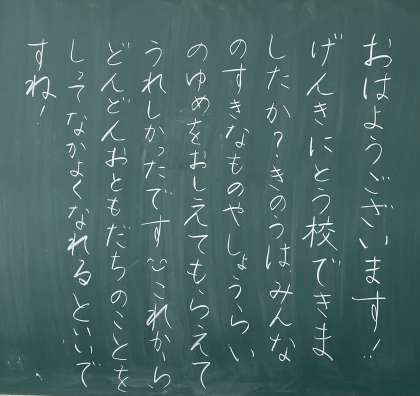 おはようございます!!
げんきにとう校できま
したか?きのうはみんな
のすきなものやしょうらい
のゆめをおしえてもらえて
うれしかったです これから
どんどんおともだちのことを
しってなかよくなれるといいで
すね!